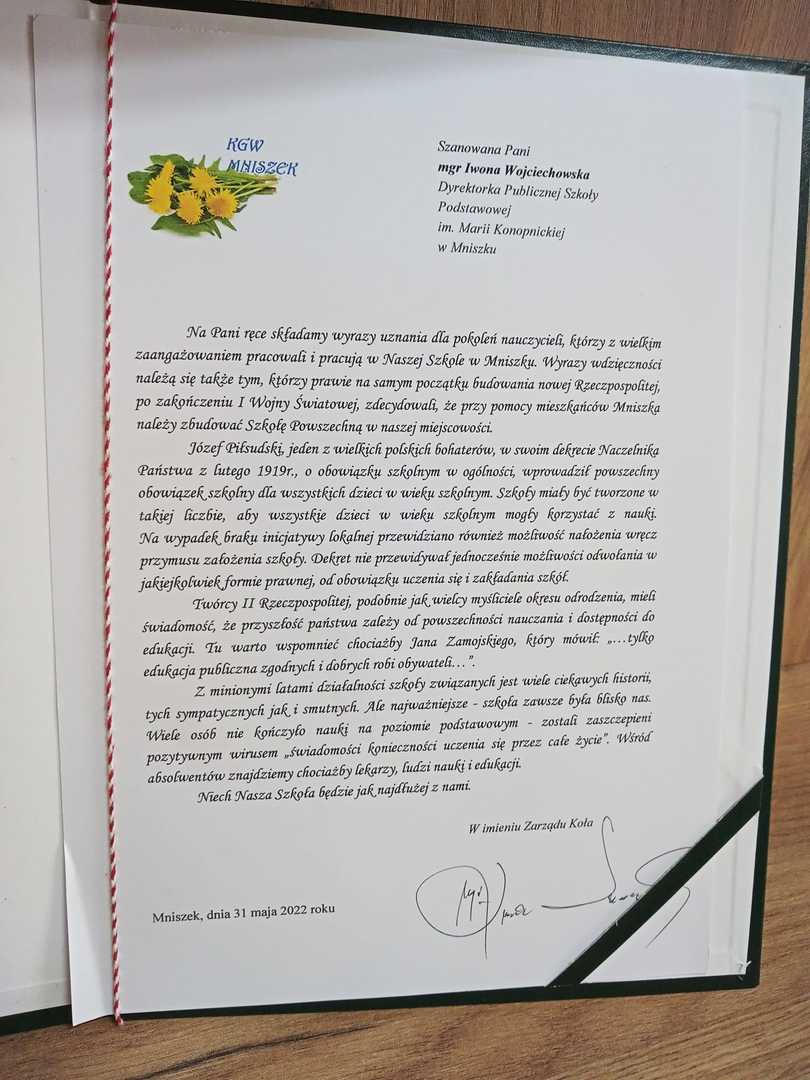 KGW
MNISZEK
Szanowana Pani
mgr Iwona Wojciechowska
Dyrektorka Publicznej Szkoły
Podstawowej
im. Marii Konopnickiej
w Mniszku
Na Pani ręce składamy wyrazy uznania dla pokoleń nauczycieli, którzy z wielkim
zaangażowaniem pracowali i pracują w Naszej Szkole w Mniszku. Wyrazy wdzięczności
należą się także tym, którzy prawie na samym początku budowania nowej Rzeczpospolitej,
po zakończeniu I Wojny Światowej, zdecydowali, że przy pomocy mieszkańców Mniszka
należy zbudować Szkołę Powszechną w naszej miejscowości.
Józef Piłsudski, jeden z wielkich polskich bohaterów, w swoim dekrecie Naczelnika
Państwa z lutego 1919r., o obowiązku szkolnym w ogólności, wprowadził powszechny
obowiązek szkolny dla wszystkich dzieci w wieku szkolnym. Szkoły miały być tworzone w
takiej liczbie, aby wszystkie dzieci w wieku szkolnym mogły korzystać z nauki.
Na wypadek braku inicjatywy lokalnej przewidziano również możliwość nałożenia wręcz
przymusu założenia szkoły. Dekret nie przewidywał jednocześnie możliwości odwołania w
jakiejkolwiek formie prawnej, od obowiązku uczenia się i zakładania szkół.
Twórcy II Rzeczpospolitej, podobnie jak wielcy myśliciele okresu odrodzenia, mieli
świadomość, że przyszłość państwa zależy od powszechności nauczania i dostępności do
edukacji. Tu warto wspomnieć chociażby Jana Zamojskiego, który mówił: „…tylko
edukacja publiczna zgodnych i dobrych robi obywateli…”.
Z minionymi latami działalności szkoły związanych jest wiele ciekawych historii,
tych sympatycznych jak i smutnych. Ale najważniejsze - szkoła zawsze była blisko nas.
Wiele osób nie kończyło nauki na poziomie podstawowym - zostali zaszczepieni
pozytywnym wirusem „świadomości konieczności uczenia się przez całe życie”. Wśród
absolwentów znajdziemy chociażby lekarzy, ludzi nauki i edukacji.
Niech Nasza Szkoła będzie jak najdłużej z nami.
W imieniu Zarządu Koła
Mniszek, dnia 31 maja 2022 roku